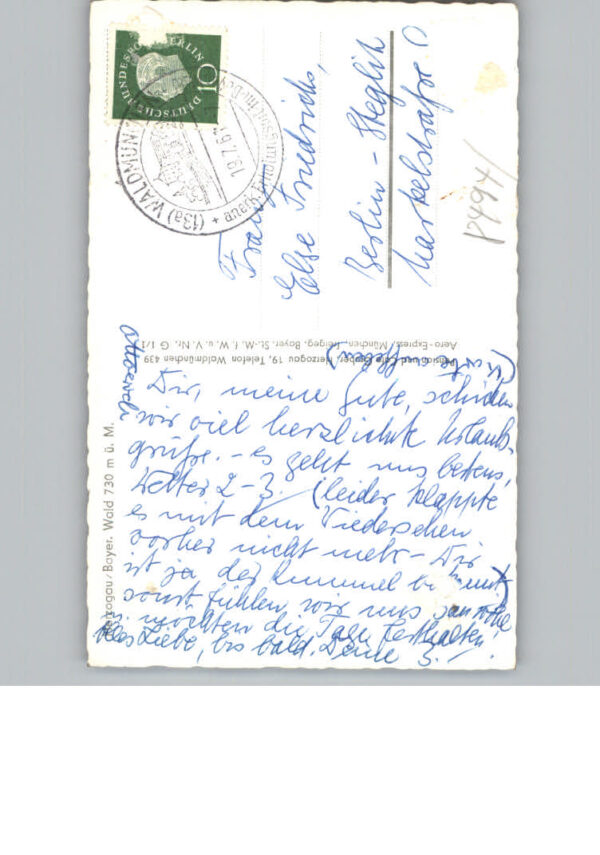 DEUTSCHE BUNDESPOST BERLIN
10
(13a) WALDMÜN
19.7.6
Frau
Else Friedrichs,
Berlin - Steglitz
Markelstraße
P494/
Pension und Café Gruber, Herzogau 19, Telefon Waldmünchen 439
Aero-Express, München, Freigeg. Bayer. St.-M. f. W. u. V. Nr. G 1/1
Herzogau/Bayer. Wald 730 m ü. M.
Dir, meine Gute, schicken
wir viel herzlichste Urlaubs-
grüße. - es geht uns bestens,
Wetter 2-3. (leider klappte
es mit dem Wiedersehen
vorher nicht mehr - Dir
ist ja der Rummel bekannt)
sonst fühlen wir uns sauwohl
u. möchten die Tage festhalten!
Alles Liebe, bis bald. Deine